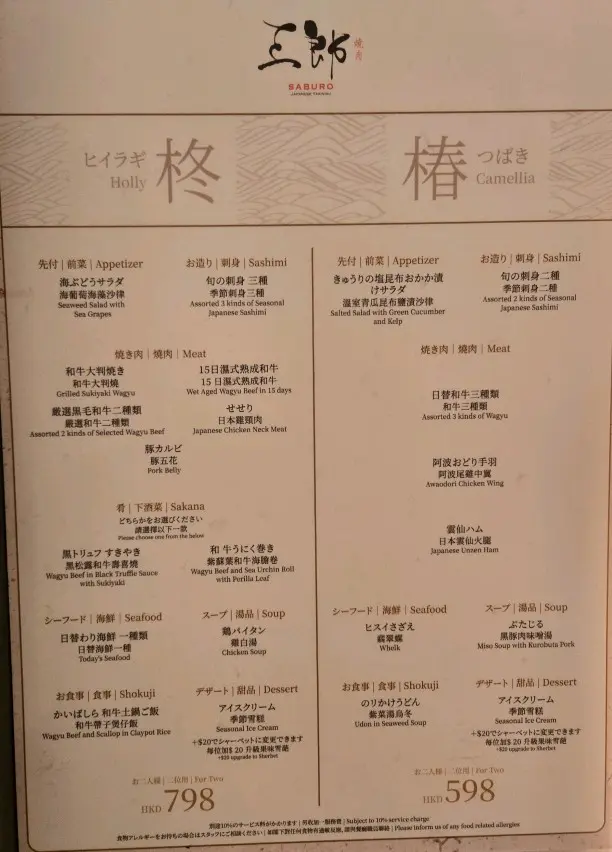 三郎
焼肉
SABURO
JAPANESE YAKINIKU
ヒイラギ
Holly
柊
先付 | 前菜 | Appetizer
海ぶどうサラダ
海葡萄海藻沙律
Seaweed Salad with
Sea Grapes
お造り | 刺身 | Sashimi
旬の刺身 三種
季節刺身三種
Assorted 3 kinds of Seasonal
Japanese Sashimi
焼き肉 | 燒肉 | Meat
和牛大判焼き
和牛大判燒
Grilled Sukiyaki Wagyu
15日濕式熟成和牛
15 日濕式熟成和牛
Wet Aged Wagyu Beef in 15 days
厳選黒毛和牛二種類
嚴選和牛二種類
Assorted 2 kinds of Selected Wagyu Beef
せせり
日本雞頸肉
Japanese Chicken Neck Meat
豚カルビ
豚五花
Pork Belly
肴 | 下酒菜 | Sakana
どちらかをお選びください
請選擇以下一款
Please choose one from the below
黒トリュフ すきやき
黑松露和牛壽喜燒
Wagyu Beef in Black Truffle Sauce
with Sukiyaki
和 牛うにく巻き
紫蘇葉和牛海膽卷
Wagyu Beef and Sea Urchin Roll
with Perilla Leaf
シーフード | 海鮮 | Seafood
日替わり海鮮 一種類
日替海鮮一種
Today's Seafood
スープ | 湯品 | Soup
鶏パイタン
雞白湯
Chicken Soup
お食事 | 食事 | Shokuji
かいばしら 和牛土鍋ご飯
和牛帶子煲仔飯
Wagyu Beef and Scallop in Claypot Rice
デザート | 甜品 | Dessert
アイスクリーム
季節雪糕
Seasonal Ice Cream
+$20でシャーベットに変更できます
每位加$ 20 升級果味雪葩
+$20 upgrade to Sherbet
お二人様 | 二位用 | For Two
HKD 798
椿
つばき
Camellia
先付 | 前菜 | Appetizer
きゅうりの塩昆布おかか漬
けサラダ
溫室青瓜昆布鹽漬沙律
Salted Salad with Green Cucumber
and Kelp
お造り | 刺身 | Sashimi
旬の刺身二種
季節刺身二種
Assorted 2 kinds of Seasonal
Japanese Sashimi
焼き肉 | 燒肉 | Meat
日替和牛三種類
和牛三種類
Assorted 3 kinds of Wagyu
阿波おどり手羽
阿波尾雞中翼
Awaodori Chicken Wing
雲仙ハム
日本雲仙火腿
Japanese Unzen Ham
シーフード | 海鮮 | Seafood
ヒスイさざえ
翡翠螺
Whelk
スープ | 湯品 | Soup
ぶたじる
黑豚肉味噌湯
Miso Soup with Kurobuta Pork
お食事 | 食事 | Shokuji
のリかけうどん
紫菜湯烏冬
Udon in Seaweed Soup
デザート | 甜品 | Dessert
アイスクリーム
季節雪糕
Seasonal Ice Cream
+$20でシャーベットに変更できます
每位加$ 20 升級果味雪葩
+$20 upgrade to Sherbet
お二人様 | 二位用 | For Two
HKD 598
別途10%のサービス料がかかります | 另收加一服務費 | Subject to 10% service charge
食物アレルギーをお持ちの場合はスタッフにご相談ください | 如閣下對任何食物有過敏反應, 請與餐廳職員聯絡 | Please inform us of any food related allergies